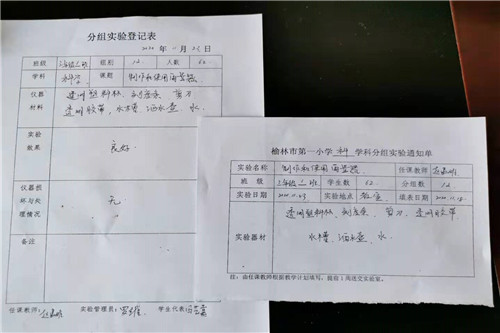 分组实验登记表
2020年11月23日
班级 三年级二班 组别 12 人数 62
学科 科学 课题 制作和使用雨量器
仪器材料 透明塑料杯、刻度条、剪刀
透明胶带、水槽、洒水壶、水
实验效果 良好
仪器损坏与处理情况 无
备注
任课教师: 实验管理员: 学生代表
榆林市第一小学 科 学科分组实验通知单
实验名称 制作和使用雨量器 任课教师
班级 三年级二班 学生数 62 分组数 12
实验日期 2020.11.23 实验地点 教室 填表日期
实验器材 透明塑料杯、刻度条、剪刀、透明胶带
水槽、洒水壶、水
注:由任课教师根据教学计划填写,提前1周送交实验室。